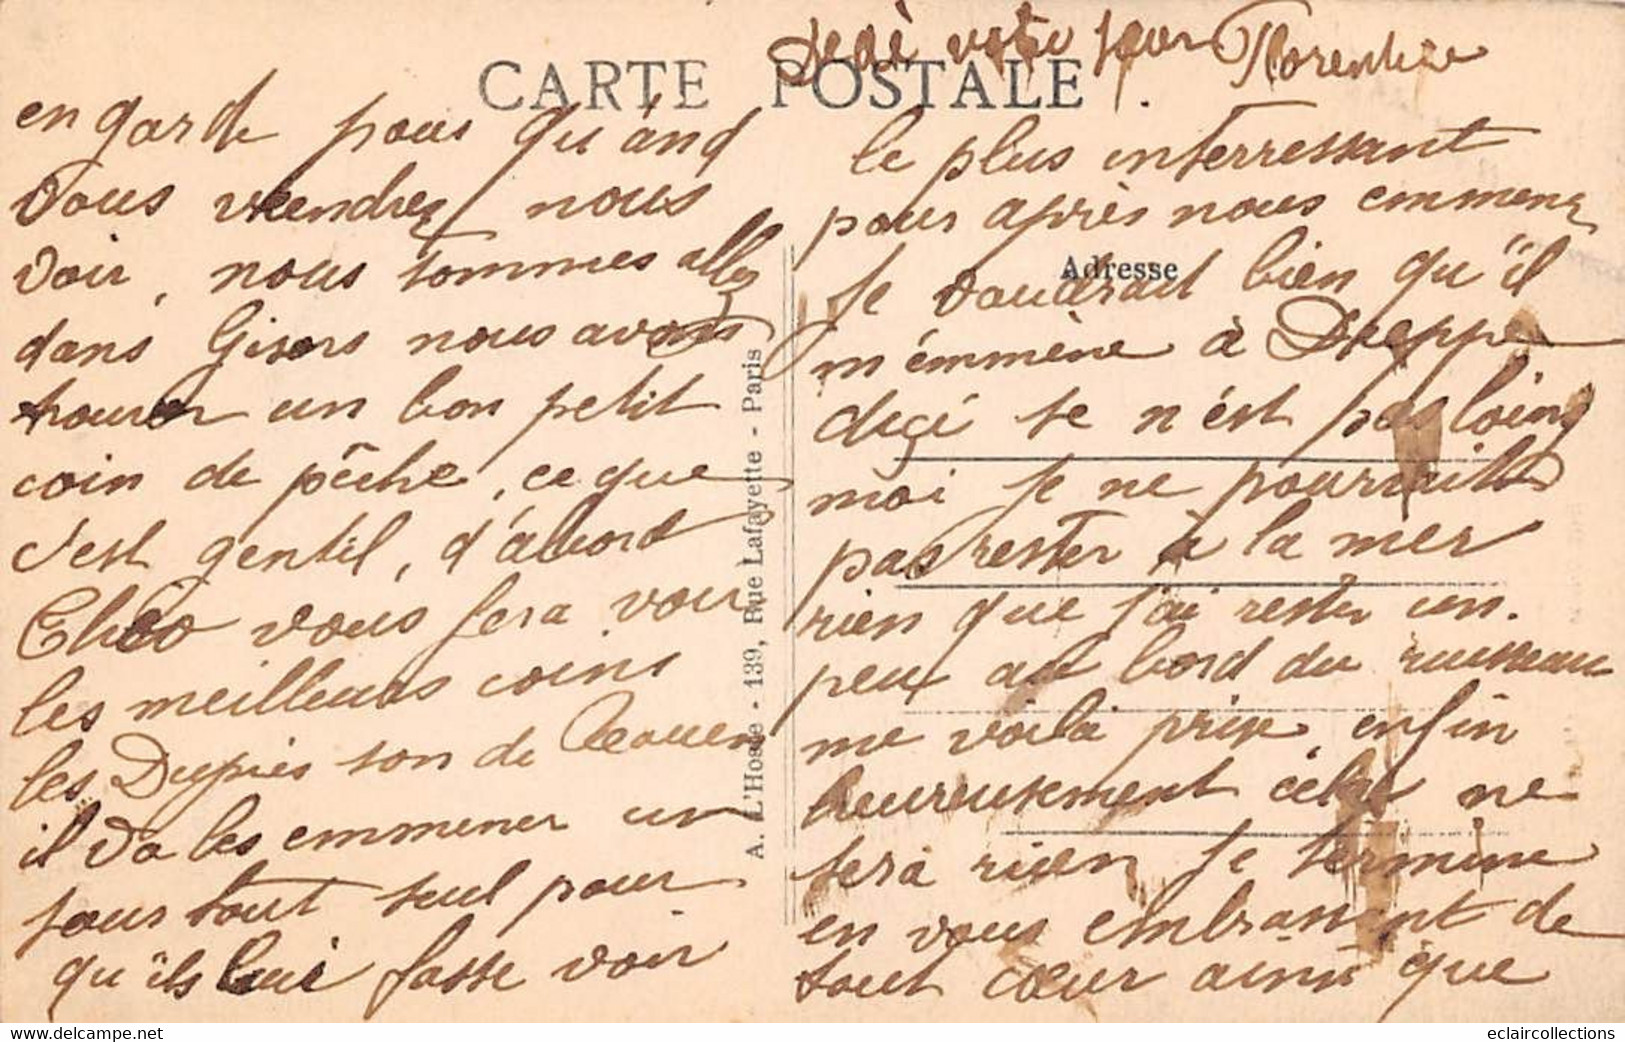 CARTE POSTALE
en garde pour quand
vous viendrez nous
voir, nous sommes allez
dans Gisors nous avons
trouver un bon petit
coin de pêche, ce que
c'est gentil, d'abord
vous fera voir
les meilleurs coins
les Dupres son de
il va les emmener un
jour tout seul pour
qu'ils lui fasse voir
A. L'Hoste - 139, Rue Lafayette - Paris
le plus interressant
pour après nous emmener
Adresse
je voudrait bien qu'il
m'emmène à Dieppe
deçi se n'est pas loing
moi je ne pourrait
pas rester à la mer
rien que j'ai rester un
peu au bord du ruisseau
me voila prise, enfin
heureusement cela ne
sera rien je termine
en vous embrassent de
tout cœur ainsi que
Dédé votre sœur Florentine
eclaircollections